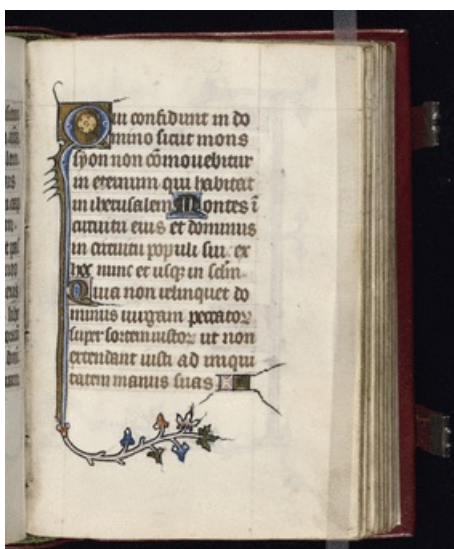 Qui confidunt in do
mino sicut mons
syon non cōmovebitur
in eternum qui habitat
in iherusalem Montes ī
circuitu eius et dominus
in circuitu populi sui ex
hoc nunc et usqȝ in sclm.
Quia non relinquet do
minus virgam peccatoꝝ
super sortem iustoꝝ ut non
extendant iusti ad iniqui
tatem manus suas